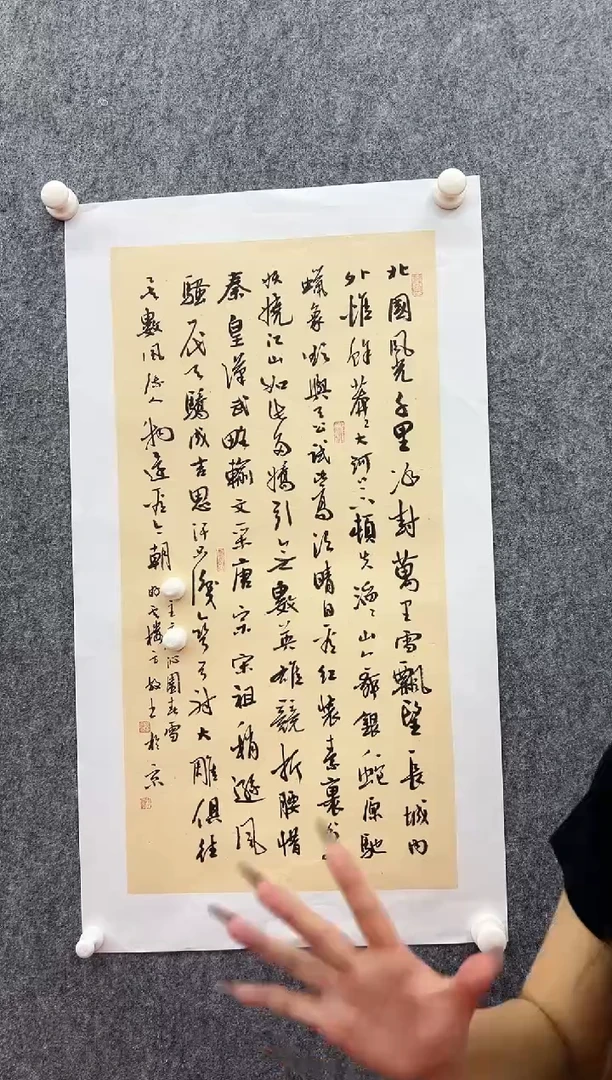 北國風光千里冰封萬里雪飄望長城內
外惟餘莽莽大河上下頓失滔滔山舞銀蛇原馳
蠟象欲與天公試比高須晴日看紅裝素裹分
妖嬈江山如此多嬌引無數英雄競折腰惜
秦皇漢武畧輸文采唐宗宋祖稍遜風
騷一代天驕成吉思汗只識彎弓射大雕俱往
矣數風流人物還看今朝
主沁園春雪
樓於京